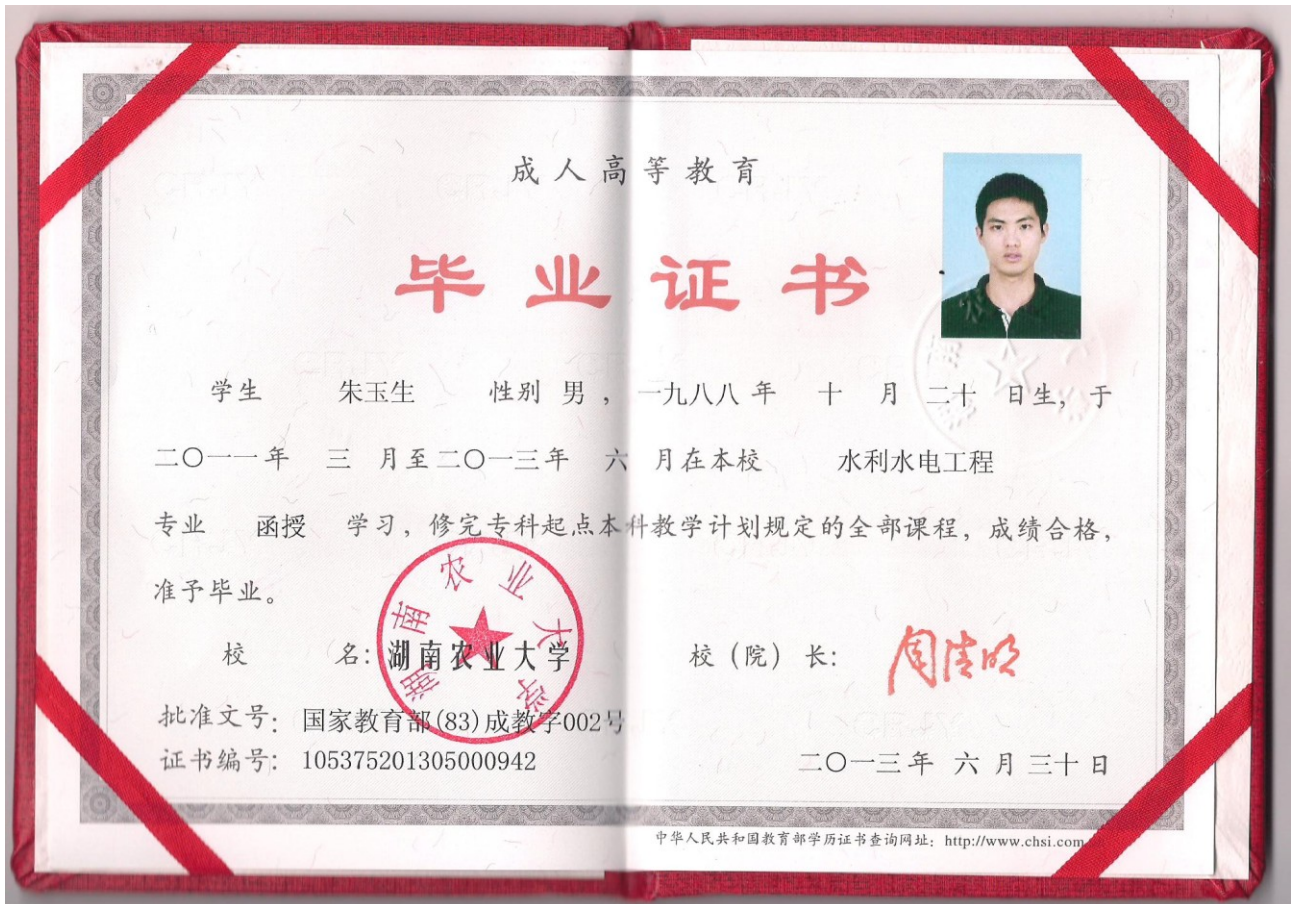 成人高等教育
毕业证书
学生 朱玉生 性别 男 ， 一九八八 年 十 月 二十 日生，于
二〇一一 年 三 月至 二〇一三 年 六 月在本校 水利水电工程
专业 函授 学习，修完专科起点本科教学计划规定的全部课程，成绩合格，
准予毕业。
校 名：湖南农业大学 校（院）长： 周清明
湖南农业大学
批准文号： 国家教育部(83)成教字002号
证书编号： 105375201305000942 二〇一三年 六 月 三十 日
中华人民共和国教育部学历证书查询网址：http://www.chsi.com